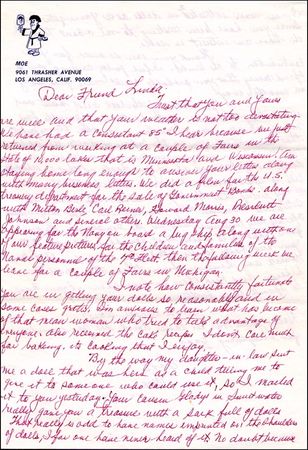 MOE
9061 THRASHER AVENUE
LOS ANGELES, CALIF. 90069
Dear Friend Linda,
Trust that you and Yours
are well and that your weather is not too devastating.
We have had a consistant 85° I hear because we just
returned from making at a couple of Fairs in the
State of 10,000 lakes that is Minnesota and Wisconsin. Am
staying home long enough to answer your letter along
with many business letters. We did a film for the U.S.
treasury department for the sale of Government Bonds. along
with Milton Berle, Carl Reiner, Howard Morris, President
Johnson, and several others. Wednesday Aug 30 we are
appearing for the Navy on board a big Ship along with one
of our feature pictures for the children and families of the
Naval personnel of the 7th fleet then the following week we
leave for a couple of Fairs in Michigan.
I note how consistantly fortunate
You are in getting your dolls so reasonably and in
some cases gratis. I'm anxious to learn what has become
of that mean woman who tried to take advantage of
anyone. also received the Cake recipe. I don't care much
for baking. its cooking that I enjoy.
By the way my daughter-in-law sent
me a doll that was hers as a child telling me to
give it to someone who could use it, so I mailed
it to you yesterday. Your Cousin Gladys in
really gave you a treasure with a sack full of dolls
That really is odd to have names imprinted on the shoulders
of dolls, I for one have never heard of it. No doubt because